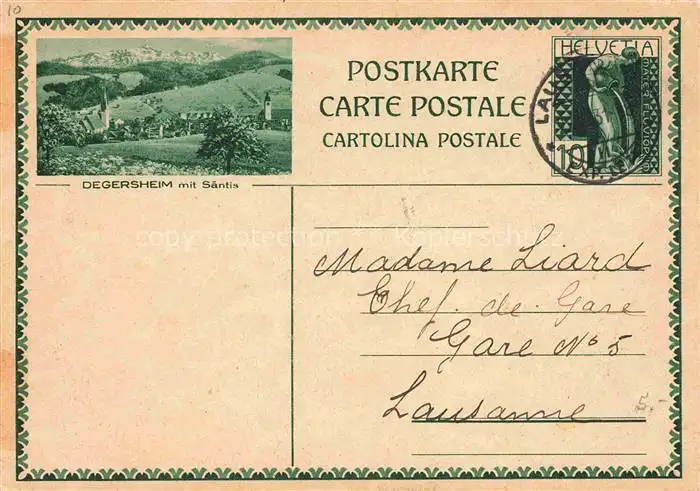 10
POSTKARTE
CARTE POSTALE
CARTOLINA POSTALE
HELVETIA
10
DEGERSHEIM mit Säntis
copy protection Kopierschutz
Madame Liard
Chef. de. Gare
Gare Nº 5
Lausanne
5.-